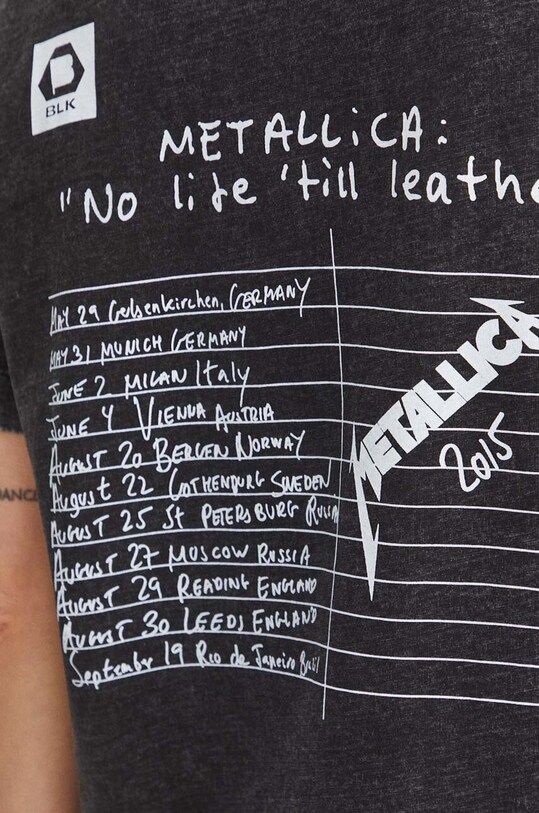 B
BLK
METALLiCA:
"No life 'till leathe
MAY 29 Gelsenkirchen, GERMANY
MAY 31 MUNICH GERMANY
JUNE 2 MILAN Italy
JUNE 4 VIENNA AUSTRIA
AUGUST 20 BERGEN NORWAY
AUGUST 22 GOTHENBURG SWEDEN
AUGUST 25 St PETERSBURG RUSSIA
AUGUST 27 MOSCOW RUSSIA
AUGUST 29 READING ENGLAND
AUGUST 30 LEEDS ENGLAND
September 19 Rio de Janeiro Brasil
METALLICA
2015
ANCE